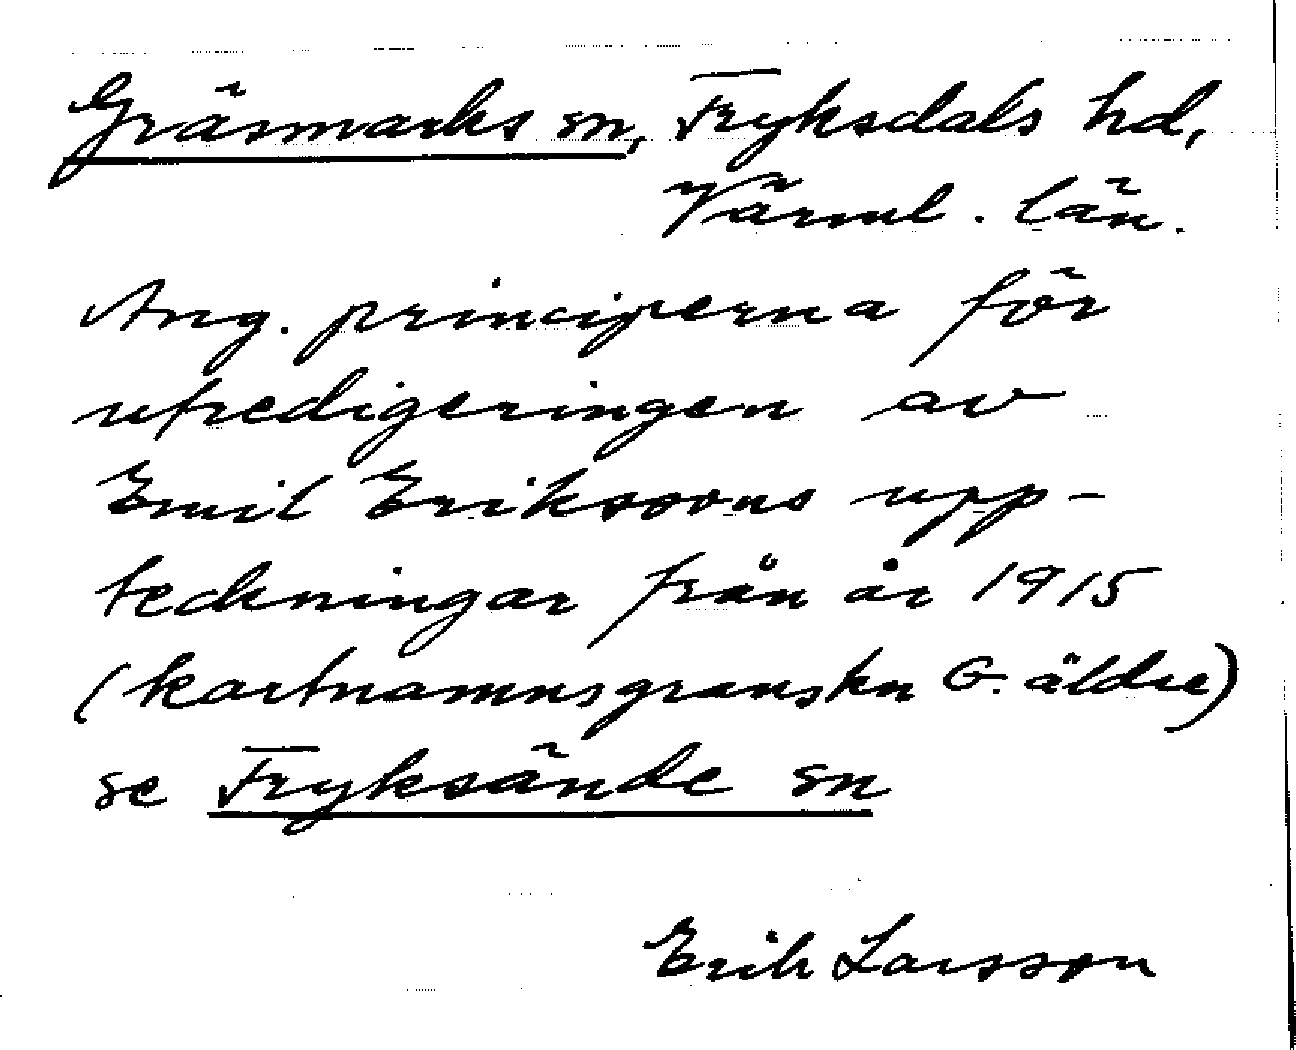 Gräsmarks sn, Fryksdals hd,
Värml. län.
Ang. principerna för
utredigeringen av
Emil Erikssons upp-
teckningar från år 1915
(kartnamnsgranskn G. äldre)
se Fryksände sn
Erik Larsson